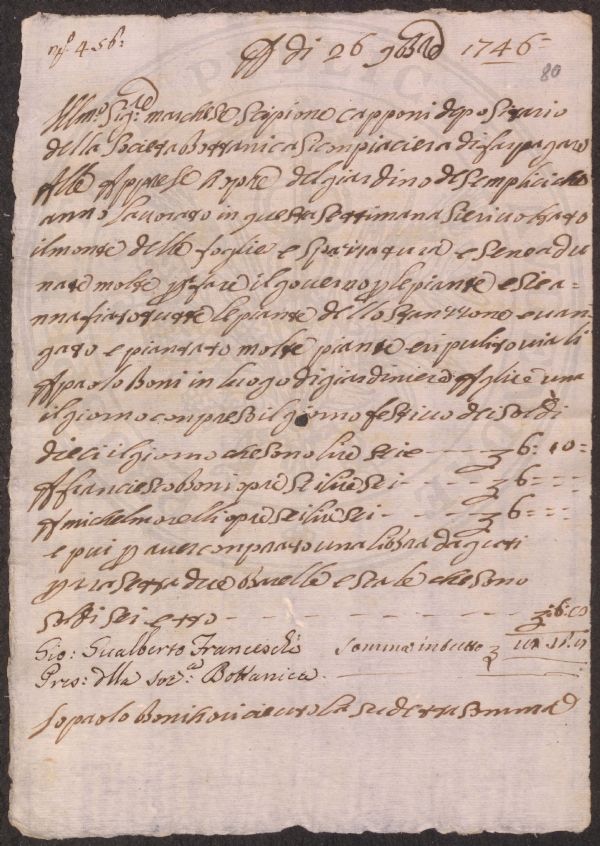 nº 456:
A di 26 9bre 1746
80
Illmo Sigre marchese Scipione Capponi depositario
della Societa Bottanica si compiaciera di far pagare
Alle Apprese hopre del giardino de semplici che
anno lavorato in questa settimana si e rivoltato
il monte delle foglie e spazzatura e se ne adu
nate molte p fare il governo p le piante e si e a=
nnafiato tutte le piante dello stanzone e van
gato e piantato molte piante e ripulito viali
A paolo Boni in luogo di giardiniere A lire una
il giorno conpreso il giorno festivo de soldi
dieci il giorno che sono lire seie 6: 10=
A franciesco Boni opre sei lire sei 6=
A michel morelli opre sei lire sei 6=
e piui p aver conprato una libbra daguti
p rasettare due barelle e scale che sono
soldi sei e otto :6:
Gio: Gualberto Franceschi somma in tutto
Pres: dlla Socà: Bottanica
Io paolo Boni ho riceuto la sudetta somma